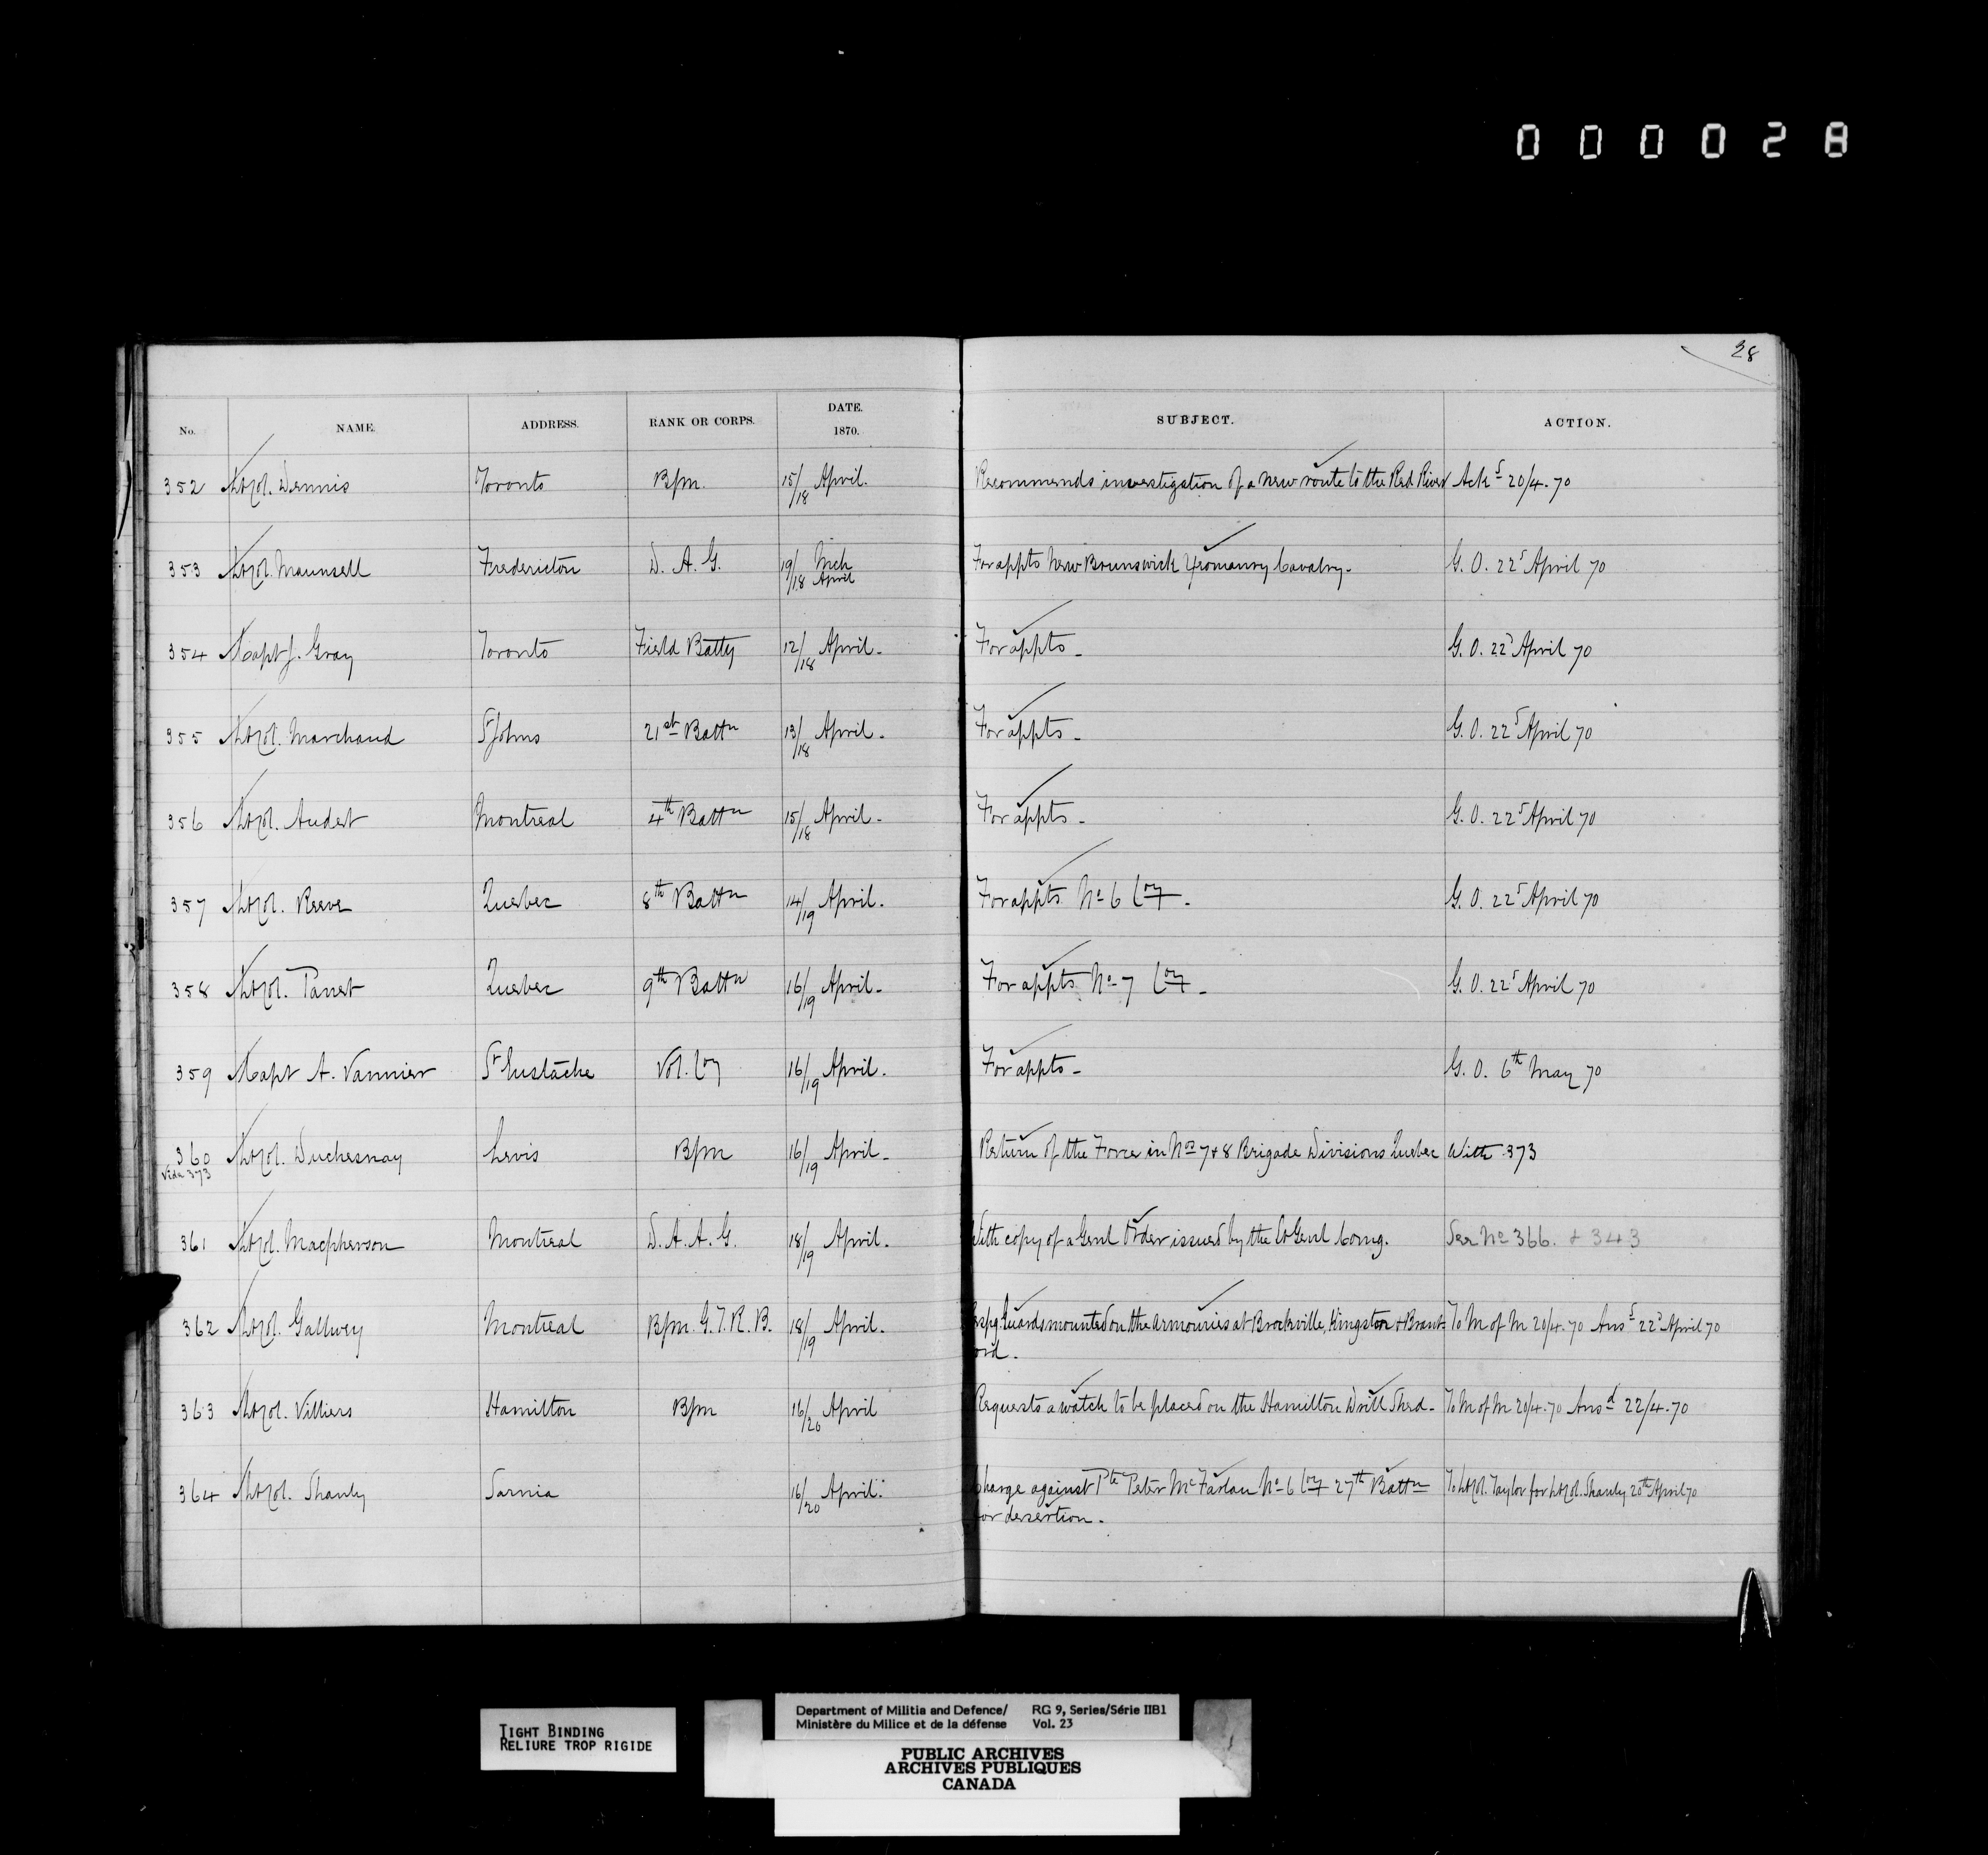 000028
28
No. NAME. ADDRESS. RANK OR CORPS. DATE. 1870. SUBJECT. ACTION.
352 Lt Col. Dennis Toronto Bpm. 15/18 April. Recommends investigation of a new route to the Red River Ackd 20/4.70
353 Lt Col. Maunsell Fredericton D. A. G. 19/ Mch /18 April For appts New Brunswick Yeomanry Cavalry. G. O. 22d April 70
354 Capt J. Gray Toronto Field Batty 12/18 April. For appts. G. O. 22d April 70
355 Lt Col. Marchand St Johns 21st Battn 13/18 April. For appts. G. O. 22d April 70
356 Lt Col. Audet Montreal 4th Battn 15/18 April. For appts. G. O. 22d April 70
357 Lt Col. Reeve Quebec 8th Battn 14/19 April. For appts No 6 Coy. G. O. 22d April 70
358 Lt Col. Panet Quebec 9th Battn 16/19 April. For appts No 7 Coy. G. O. 22d April 70
359 Capt A. Vannier St Eustache Vol. Coy 16/19 April. For appts. G. O. 6th May 70
360 Lt Col. Duchesnay Levis Bpm 16/19 April. Return of the Force in Nos 7 & 8 Brigade Divisions Quebec With 373
Vide 373
361 Lt Col. Macpherson Montreal D. A. A. G. 18/19 April. With copy of a Genl Order issued by the Lt Genl Comg. See No 366. & 343
362 Lt Col. Gallwey Montreal Bpm. G. T. R. B. 18/19 April. Respg. Guards mounted on the armouries at Brockville, Kingston & Brant- To M of M 20/4.70 Ansd 22d April 70
ford.
363 Lt Col. Villiers Hamilton Bpm 16/20 April Requests a watch to be placed on the Hamilton Drill Shed. To M of M 20/4.70 Ansd 22/4.70
364 Lt Col. Shanly Sarnia 16/20 April. Charge against Pte Peter McFarlan No 6 Coy 27th Battn To Lt Col. Taylor for Lt Col. Shanly 20th April 70
for desertion.
TIGHT BINDING
RELIURE TROP RIGIDE
Department of Militia and Defence/ RG 9, Series/Série IIB1
Ministère du Milice et de la défense Vol. 23
PUBLIC ARCHIVES
ARCHIVES PUBLIQUES
CANADA